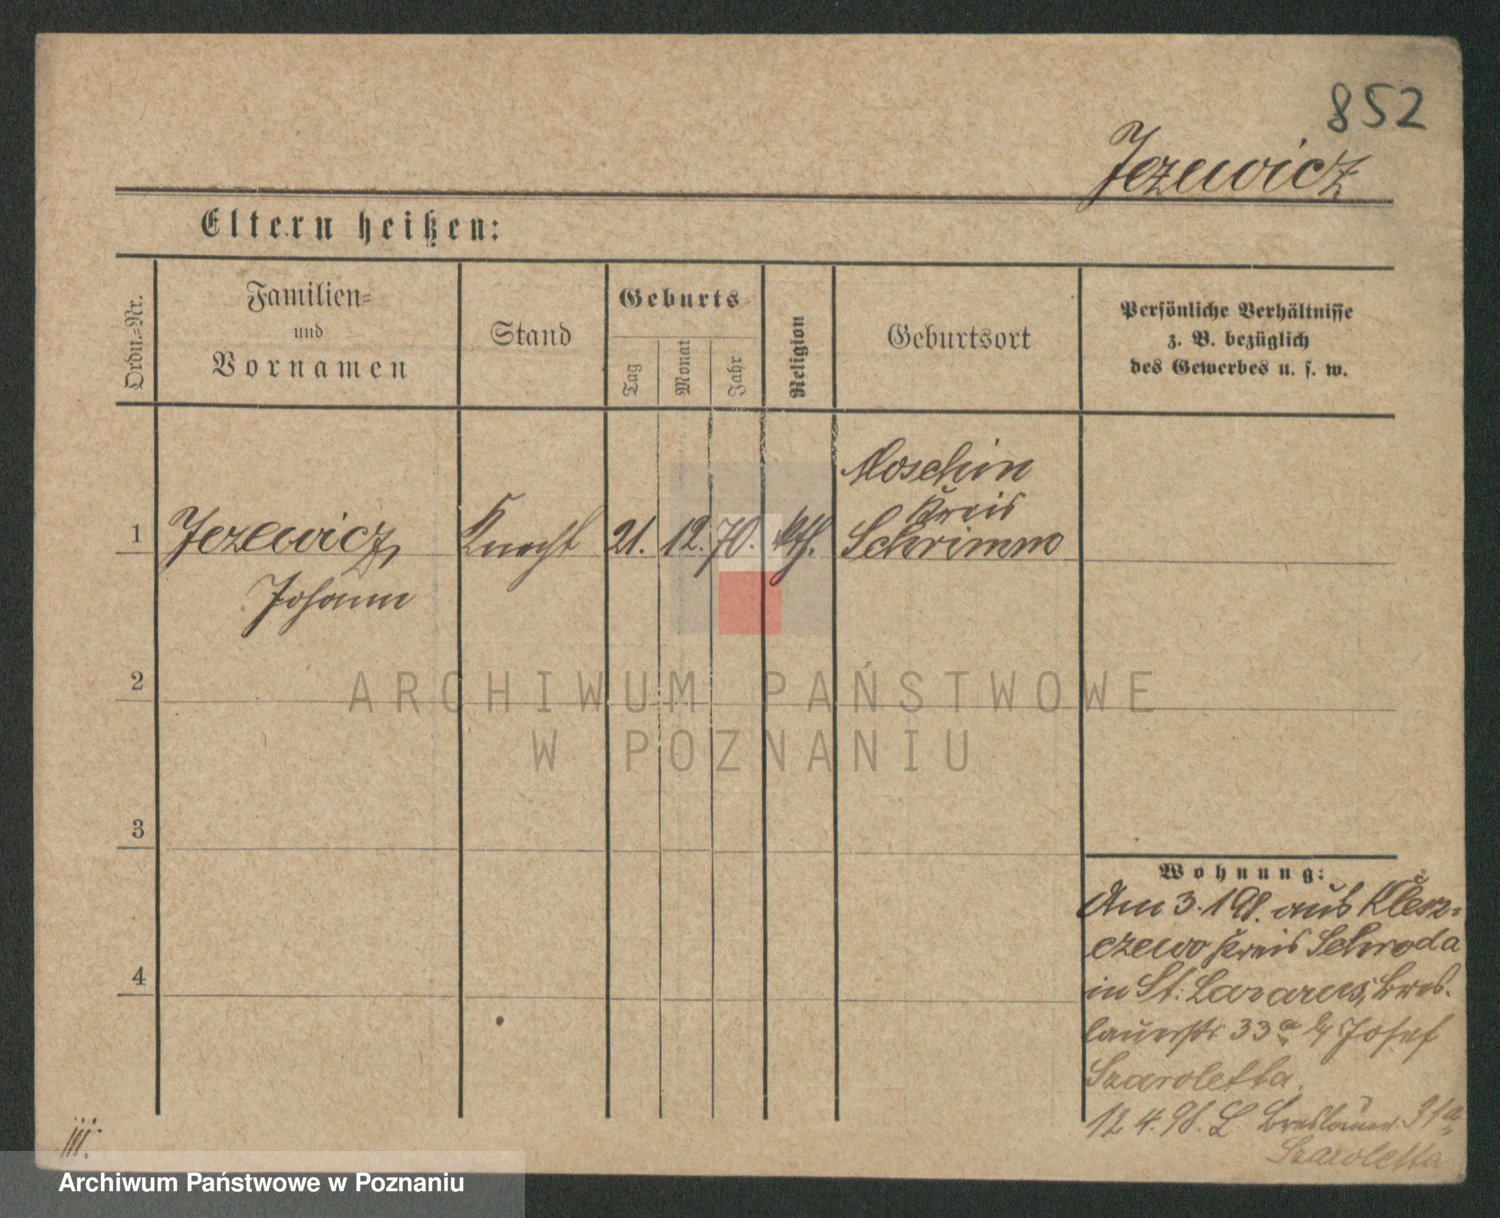 852
Jezewicz
Eltern heißen:
Ordn.=Nr.
Familien=
und
Vornamen
Stand
Geburts=
Tag
Monat
Jahr
Religion
Geburtsort
Persönliche Verhältnisse
z. B. bezüglich
des Gewerbes u. s. w.
1
Jezewicz,
Johann
Knecht
21.
12.
70.
kth.
Moschin
Kreis
Schrimm
2
3
4
Wohnung:
Am 3.1 98. aus Klesz=
czewo Kreis Schroda
in St. Lazarus, Bres.
lauerstr. 33a b/ Josef
Szaroletta.
12 4. 98. L Breslauer 31a
Szaroletta
iii.
ARCHIWUM PAŃSTWOWE
W POZNANIU
Archiwum Państwowe w Poznaniu